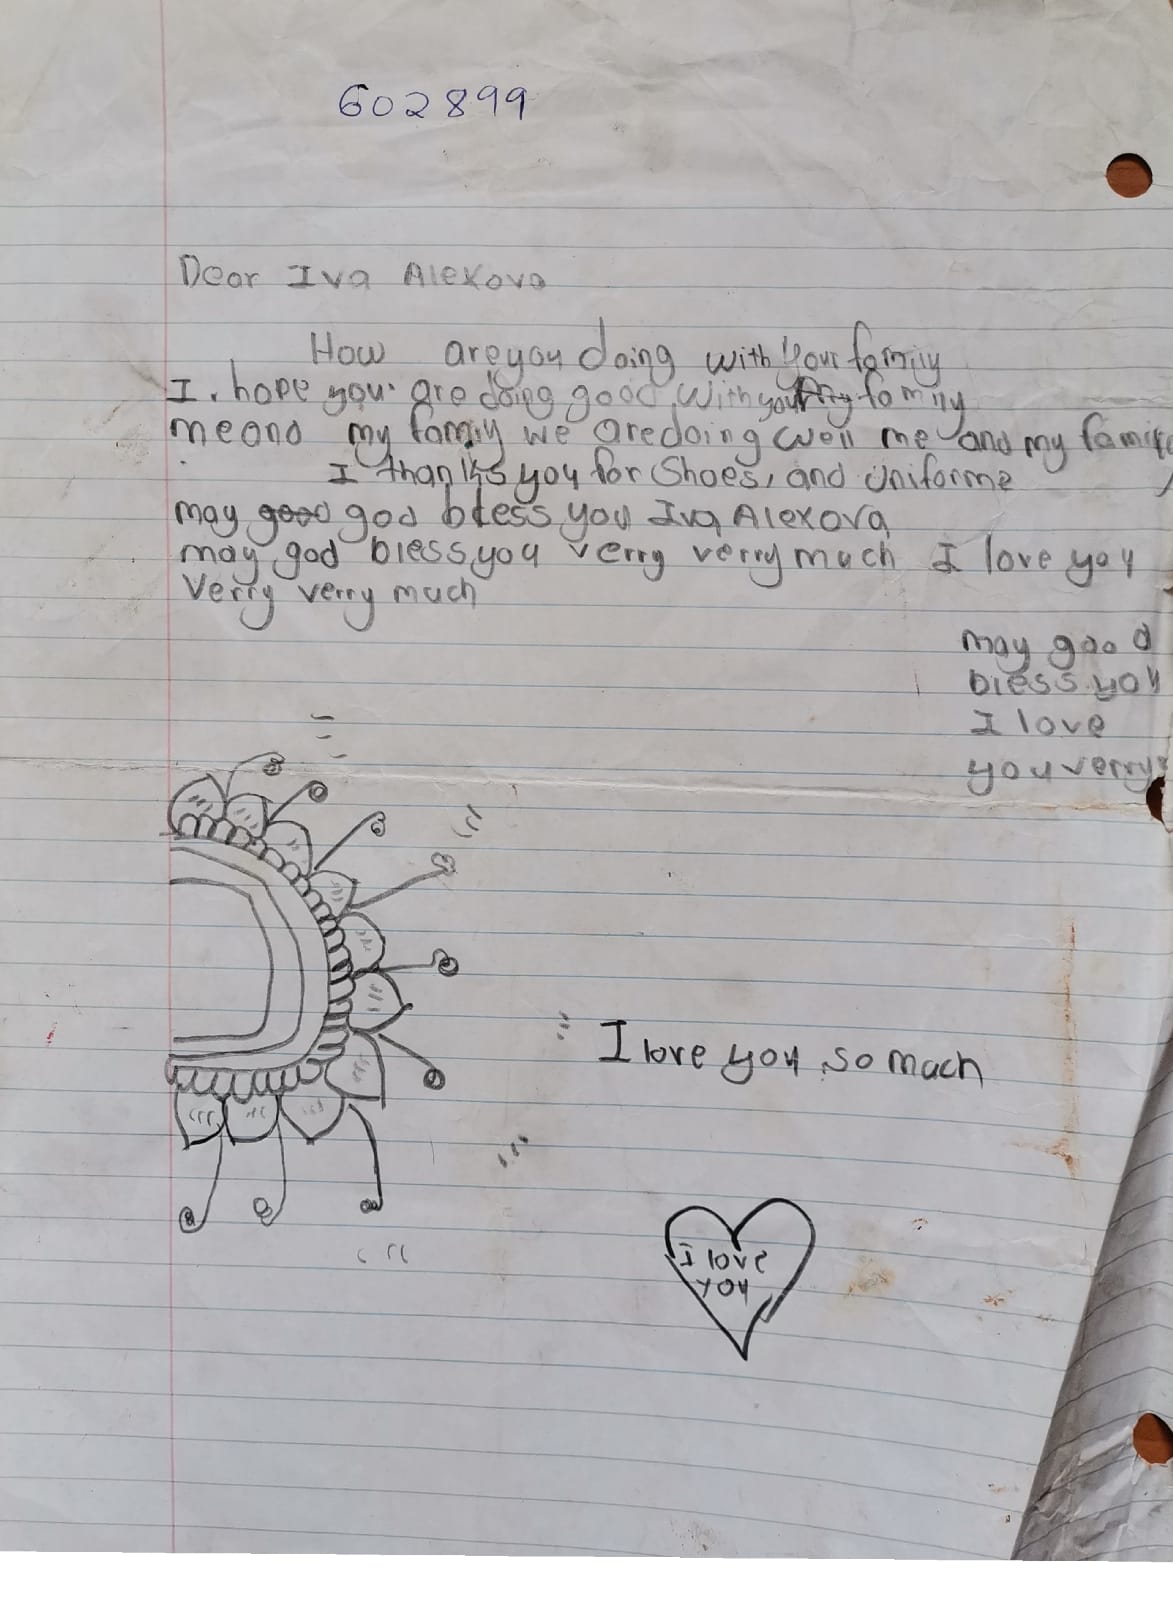 602899
Dear Iva Alexova
How are you doing with Your family
I. hope you are doing good With your family
me and my family we are doing well me and my family
I thanks you for Shoes, and Uniforme
may god bless you Iva Alexova
may god bless you verry verry much I love you
Verry verry much
may good
bless you
I love
you verry
I love you so mach
I love
you